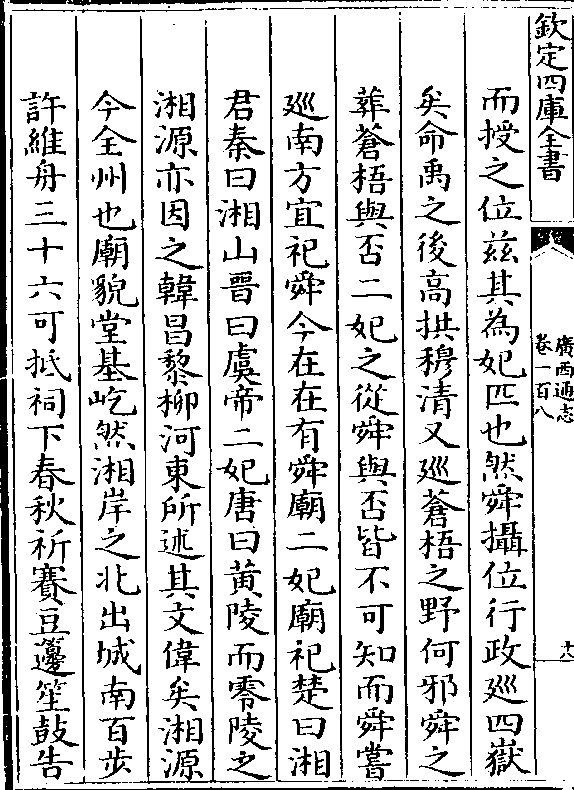 欽定四庫全書
廣西通志
卷一百八
十八
而授之位兹其為妃匹也然舜攝位行政廵四嶽
矣命禹之後高拱穆清又廵蒼梧之野何邪舜之
葬蒼梧與否二妃之從舜與否皆不可知而舜嘗
廵南方宜祀舜今在在有舜廟二妃廟祀楚曰湘
君秦曰湘山晉曰虞帝二妃唐曰黄陵而零陵之
湘源亦因之韓昌黎柳河東所述其文偉矣湘源
今全州也廟貌堂基屹然湘岸之北出城南百步
許維舟三十六可抵祠下春秋祈賽豆籩笙鼓告